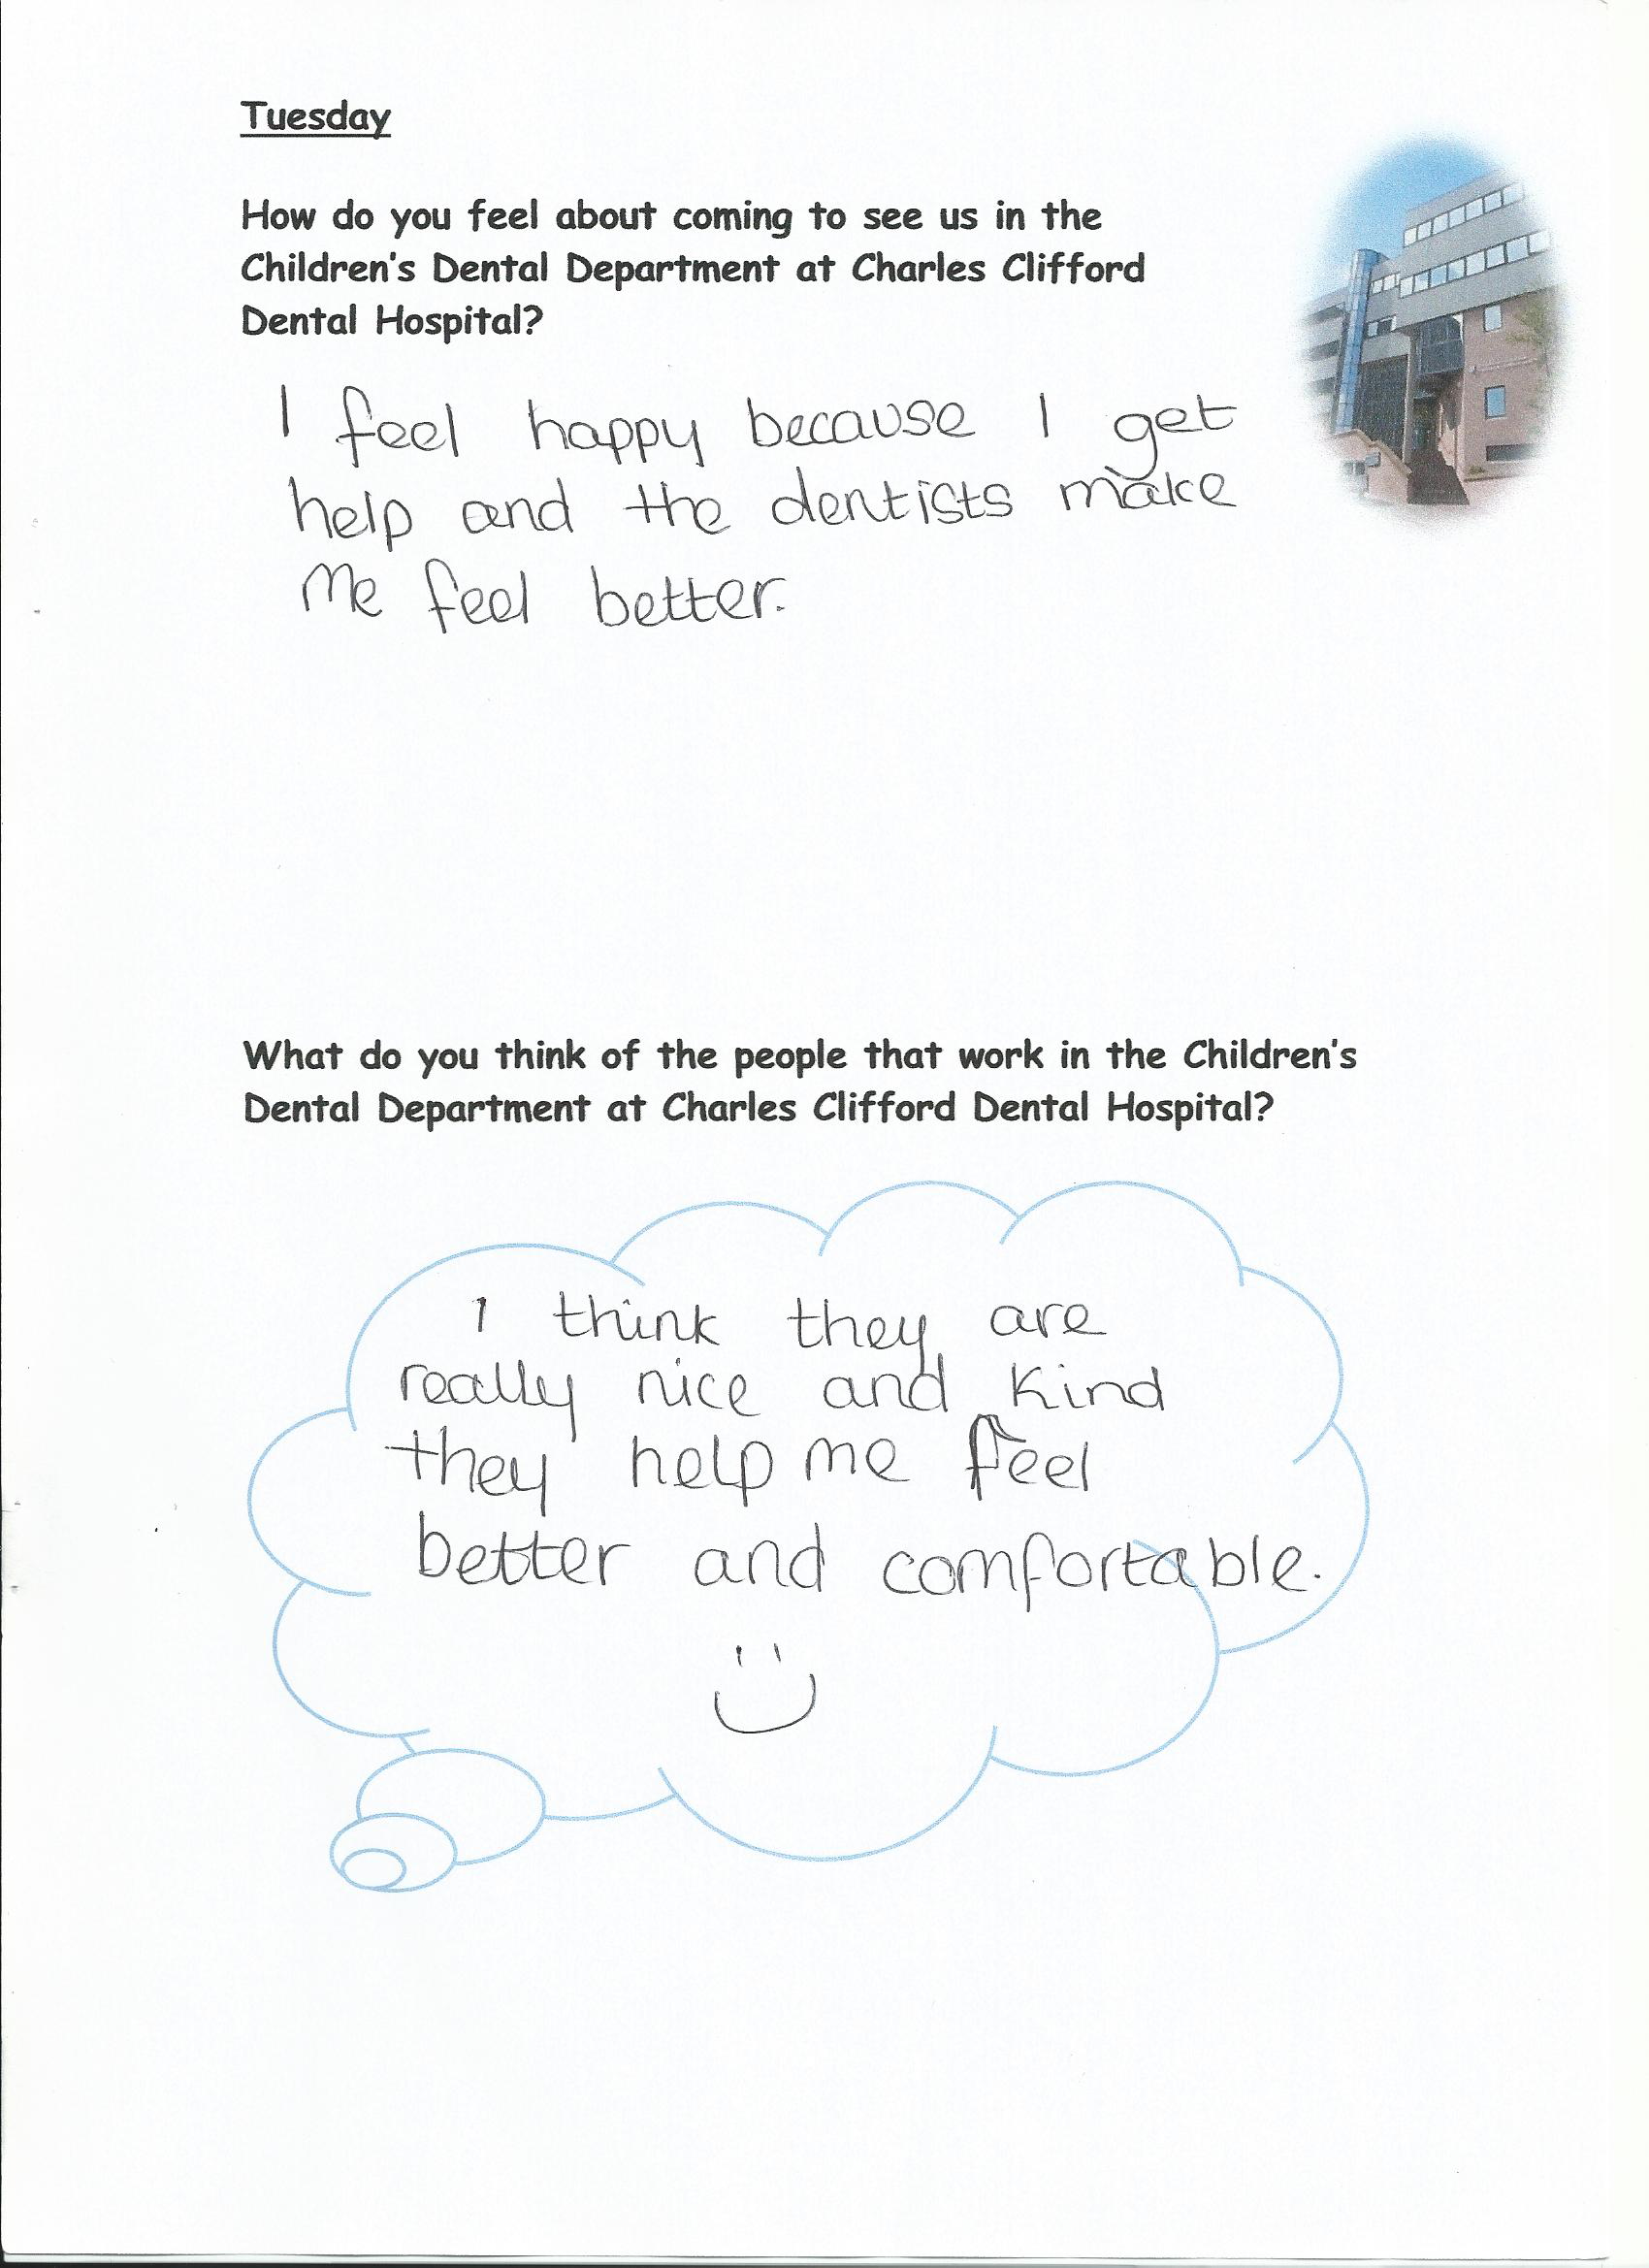 Tuesday
How do you feel about coming to see us in the
Children's Dental Department at Charles Clifford
Dental Hospital?
I feel happy because I get
help and the dentists make
me feel better.
What do you think of the people that work in the Children's
Dental Department at Charles Clifford Dental Hospital?
I think they are
really nice and kind
they help me feel
better and comfortable.